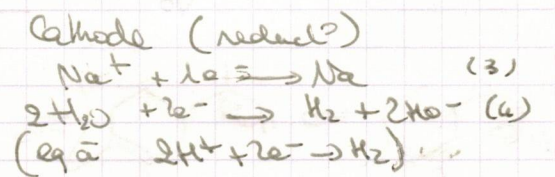 Cathode (réduct°)
Na⁺ + 1e⁻ → Na (3)
2H₂O + 2e⁻ → H₂ + 2HO⁻ (4)
(eq à 2H⁺ + 2e⁻ → H₂)...